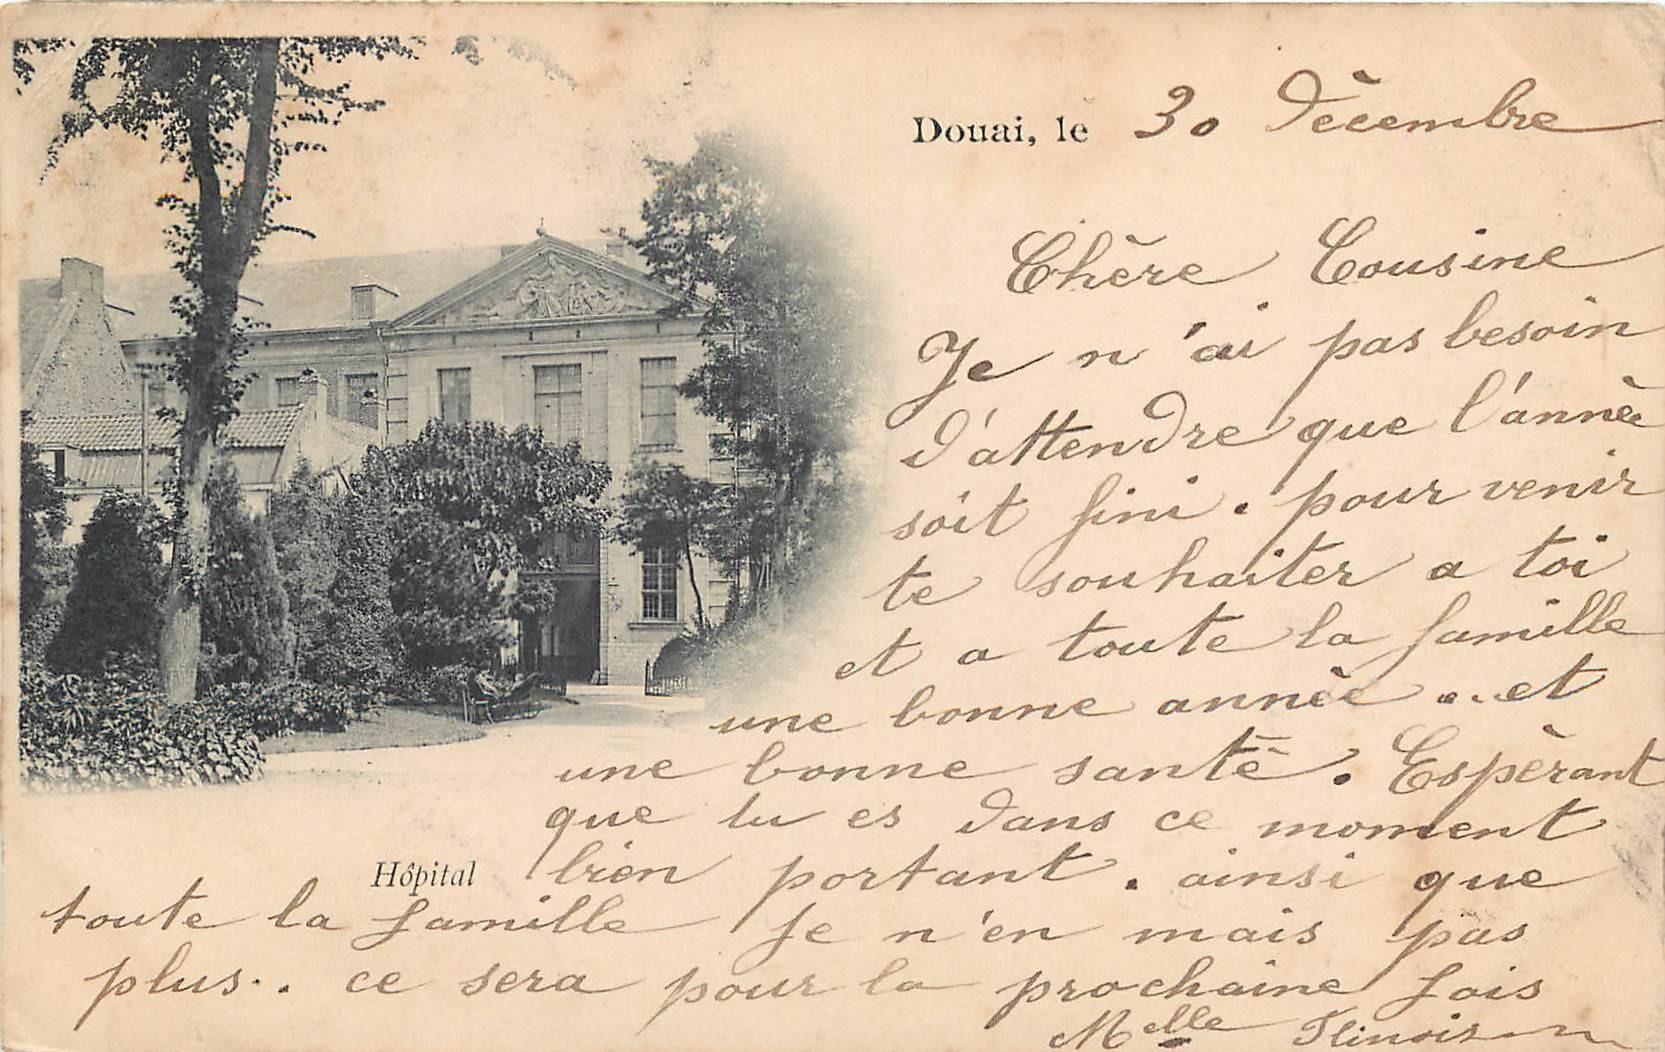 Douai, le 30 Décembre
Chère Cousine
Je n'ai pas besoin
d'attendre que l'année
soit fini. pour venir
te souhaiter a toi
et a toute la famille
une bonne année . . et
une bonne santé. Espèrant
que tu es dans ce moment
Hôpital
bien portant. ainsi que
toute la famille Je n'en mais pas
plus.. ce sera pour la prochaine fois
Mlle